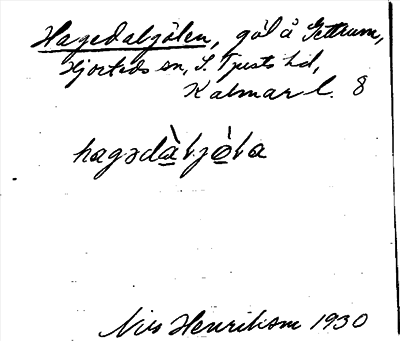 Hagedalgölen, göl å Gettrum,
Hjorteds sn, S. Tjusts hd,
Kalmar l. 8
hagədàljò̱la
Nils Henrikson 1930